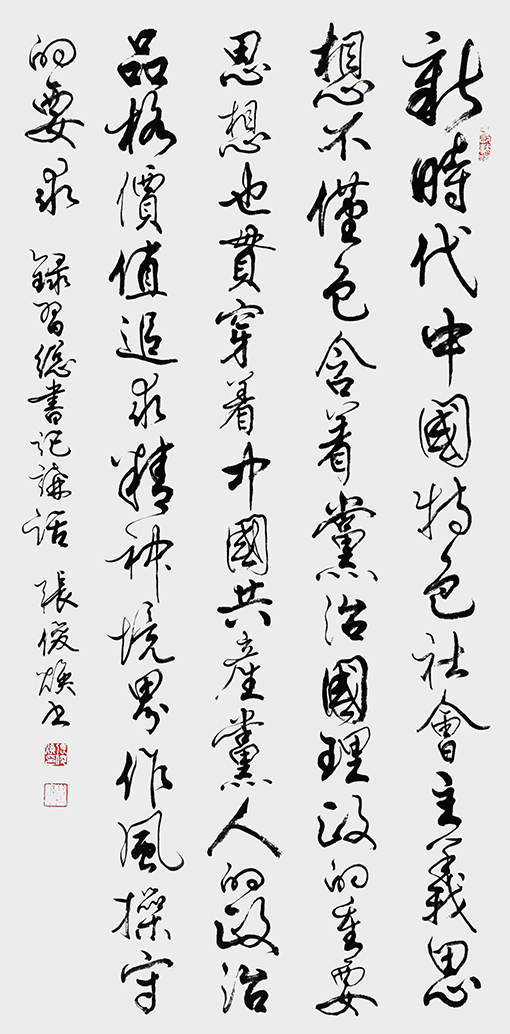 新時代中國特色社會主義思
想不僅包含着黨治國理政的重要
思想也貫穿着中國共產黨人的政治
品格價值追求精神境界作風操守
的要求 錄習總書記講話 張俊煥書